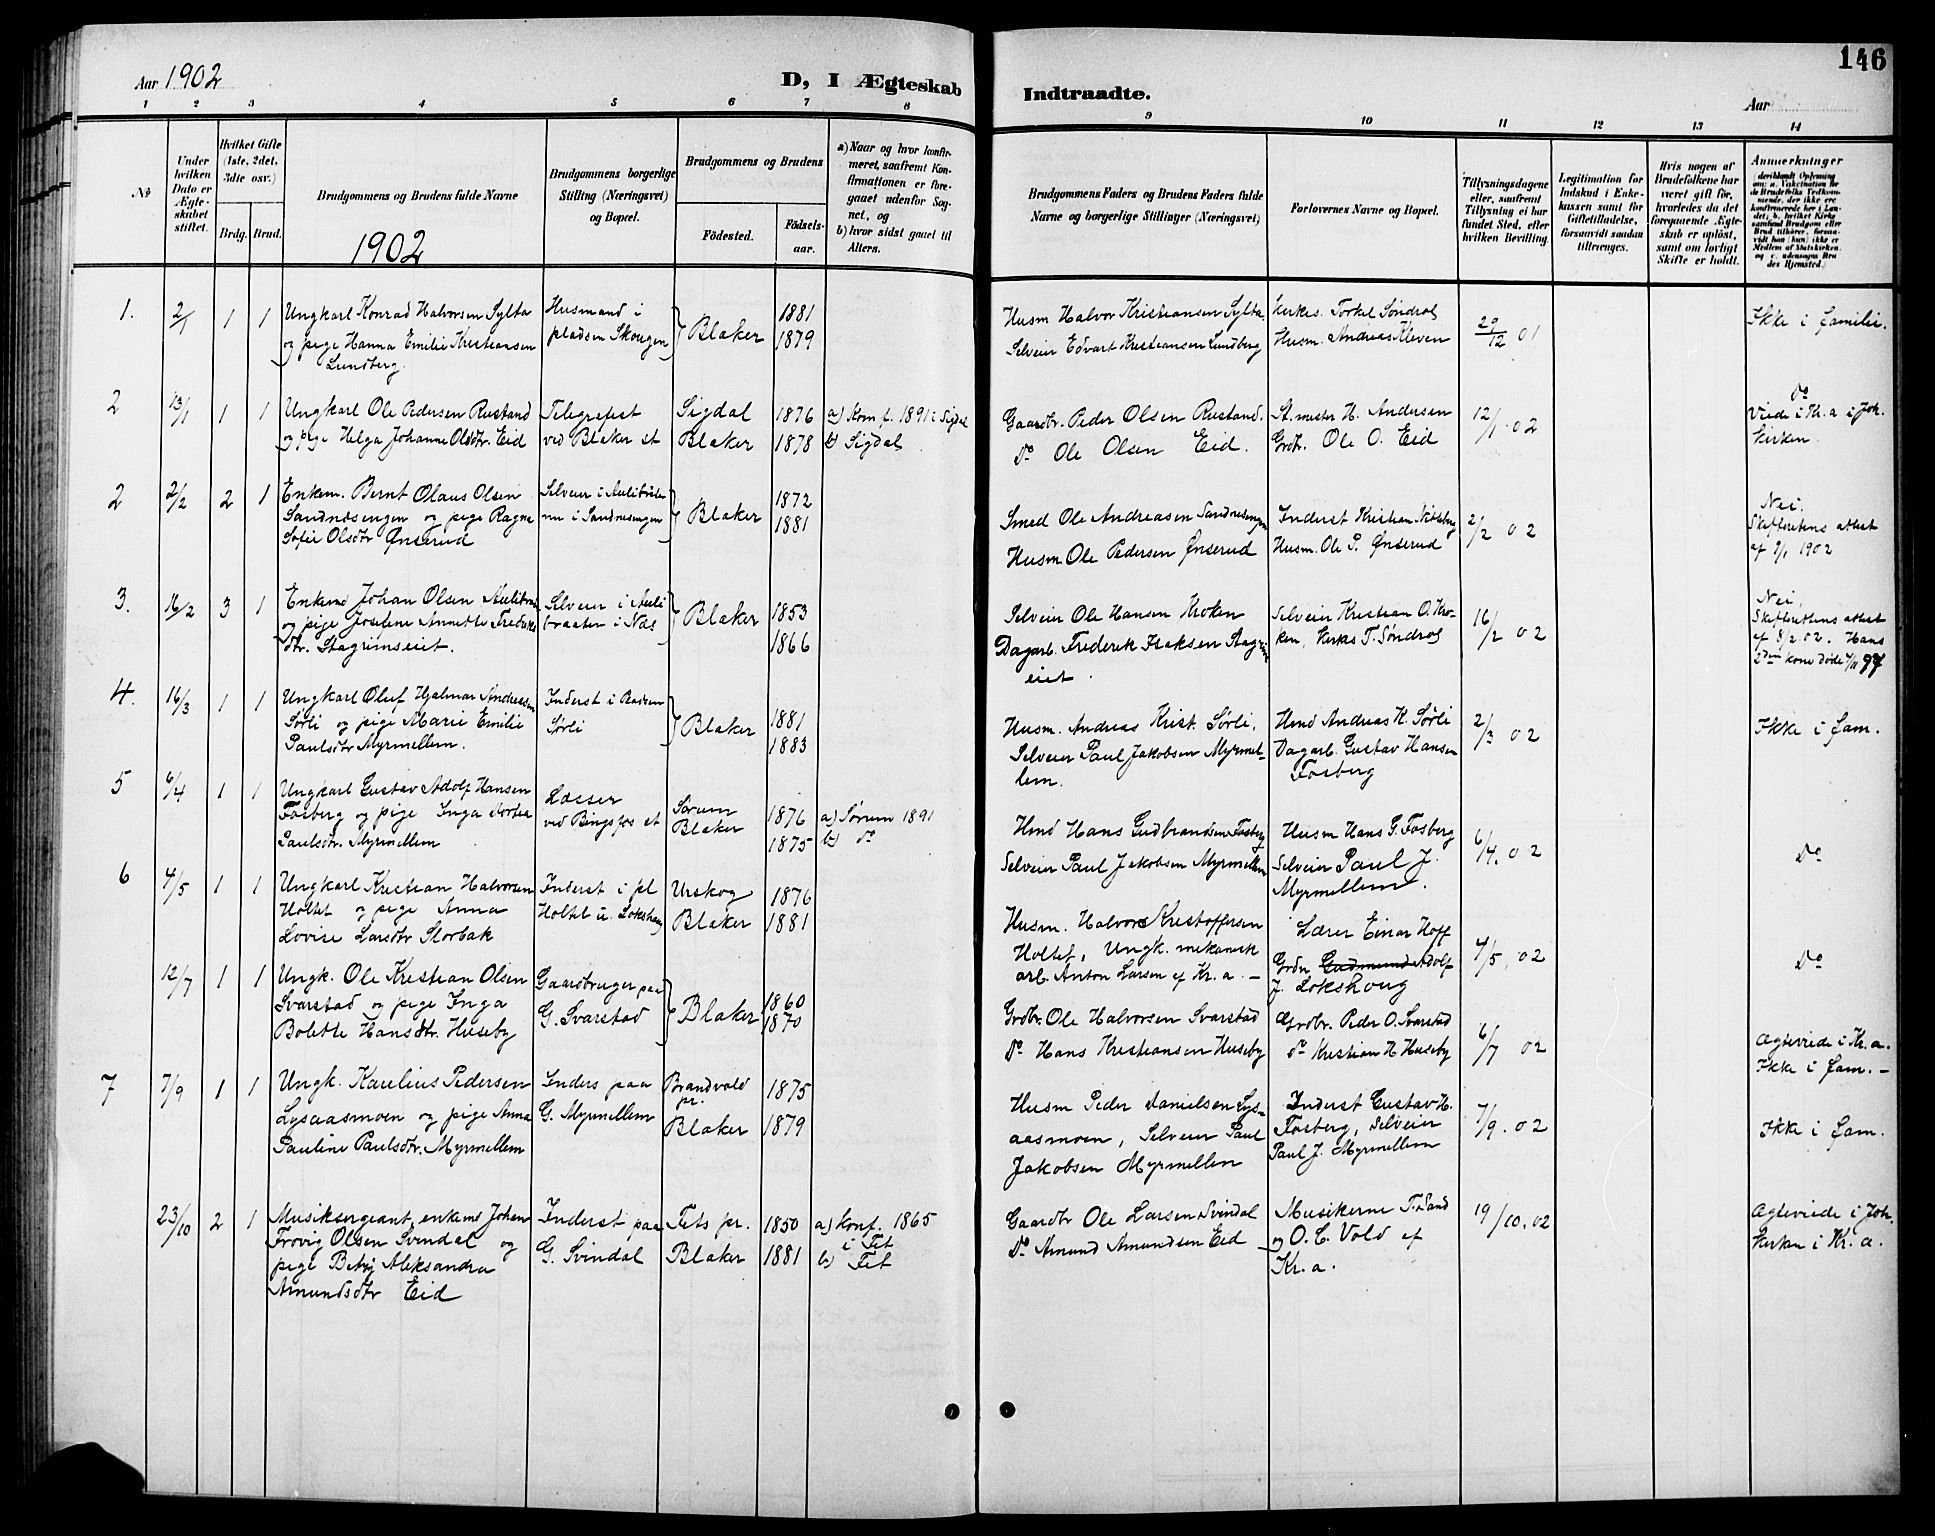 146
Aar 1902
D, I Ægteskab
Indtraadte.
Aar
1 2 3 4 5 6 7 8 9 10 11 12 13 14
No
Under
hvilken
Dato er
Ægte-
skabet
stiftet.
Hvilket Gifte
(1ste, 2det,
3die osv.)
Brdg. Brud.
Brudgommens og Brudens fulde Navne
1902
Brudgommens borgerlige
Stilling (Næringsvei)
og Bopæl.
Brudgommens og Brudens
Fødested.
Fødsels-
aar.
a) Naar og hvor konfir-
meret, saafremt Kon-
firmationen er fore-
gaaet udenfor Sog-
net, og
b) hvor sidst gaaet til
Alters.
Brudgommens Faders og Brudens Faders fulde
Navne og borgerlige Stillinger (Næringsvei)
Forlovernes Navne og Bopæl.
Tillysningsdagene
eller, saafremt
Tillysning ei har
fundet Sted, efter
hvilken Bevilling.
Legitimation for
Indskud i Enke-
kassen samt for
Giftetilladelse,
forsaavidt saadan
tiltrænges.
Hvis nogen af
Brudefolkene har
været gift før,
hvorledes da det
foregaaende Ægte-
skab er opløst,
samt om lovligt
Skifte er holdt.
Anmerkninger
1. 2/1 1 1
Ungkarl Konrad Halvorsen Sylta
og pige Hanna Emilie Kristiansen
Lundberg.
Husmand i
pladsen Skougen
Blaker
1881
1879
Husm Halvor Kristiansen Sylta
Selveier Edvart Kristiansen Lundberg
Kirkes. Torkel Søndrol
Husm. Andreas Kleven
29/12 01
Ikke i familie.
2 13/1 1 1
Ungkarl Ole Pedersen Rustand
og pige Helga Johanne Olsdtr. Eid
Telegrafist
ved Blaker st
Sigdal 1876
Blaker 1878
a) Konf. 1891 i Sigdal
b) Sigdal
Gaardbr. Peder Olsen Rustand.
Do Ole Olsen Eid.
St. mester H. Andersen
Grdbr. Ole O. Eid
12/1 . 02
Do
Viede i Kr.a i Joh.
Kirken.
2 2/2 2 1
Enkem. Bernt Olaus Olsen
Sandnesengen og pige Ragna
Sofie Olsdtr Ønserud
Selveier i
i Sandnesengen
Blaker
1872
1881
Smed Ole Andreasen Sandnesengen
Husm. Ole Pedersen Ønserud
Inderst Kristian
Husm. Ole P. Ønserud
2/2 02
Nei.
Skifteretens attest
af 1902
3. 16/2 3 1
Enkemd Johan Olsen
og pige Josefine Annette Fredriks
dtr. Stagrimseiet.
Selveier i Auli
braaten i Næs
Blaker
1853
1866
Selveier Ole Hansen Kroken
Dagarb. Frederik Isaksen Stagrims
eiet
Selveier Kristian O. Kro-
ken, Kirkes T. Søndrol
16/2 02
Nei,
Skifteretens attest
af 8/2 02. Hans
2den kone døde 97
4. 16/3 1 1
Ungkarl Oluf Hjalmar Andreasen
Sørli og pige Marie Emilie
Paulsdtr Myrmellem.
Inderst i
Sørli
Blaker
1881
1883
Husm. Andreas Krist. Sørli.
Selveier Paul Jakobsen Myrmel-
lem.
Hmd Andreas K. Sørli
Dagarb. Gustav Hansen
Fosberg
2/3 02
Ikke i fam.
5 6/4 1 1
Ungkarl Gustav Adolf Hansen
Fosberg og pige Inga Dortea
Paulsdtr. Myrmellem
Læsser
ved Bingsfos st
Sørum 1876
Blaker 1875
a) Sørum 1891
b) do
Hmd Hans Gudbrandsen Fosberg
Selveier Paul Jakobsen Myrmellem
Husm Hans G. Fosberg
Selveier Paul J.
Myrmellem.
6/4. 02
Do
6 4/5 1 1
Ungkarl Kristian Halvorsen
Holtet og pige Anna
Lovise Larsdtr Storbak
Inderst i pl
Holtet u. Lokshaug
Urskog 1876
Blaker 1881
Husm. Halvor Kristoffersen
Holtet, Ungk. mekanisk
arb. Anton Larsen af Kr.a. –
Lærer Einar Hoff
Grdbr. Gudmund Adolf
J. Lokshoug
4/5, 02
Do
12/7 1 1
Ungk. Ole Kristian Olsen
Svarstad og pige Inga
Bolette Hansdtr. Huseby
Gaardbruger paa
G. Svarstad
Blaker
1860
1870
Grdbr. Ole Halvorsen Svarstad
Do Hans Kristiansen Huseby
Grdbr. Peder O. Svarstad
do Kristian H. Huseby
6/7 02
Agteviede i Kr.a.
Ikke i fam. –
7 7/9 1 1
Ungk. Karelius Pedersen
Lysaasmoen og pige Anna
Pauline Paulsdtr. Myrmellem
Inders paa
G. Myrmellem
Brandvold
pr. 1875
Blaker 1879
Husm Peder Danielsen Lys-
aasmoen, Selveier Paul
Jakobsen Myrmellem
Inderst Gustav H.
Fosberg, Selveier
Paul J. Myrmellem
7/9. 02
Ikke i fam.
23/10 2 1
Musiksergeant, enkemd Johan
Frovig Olsen Svindal og
pige Betsy Aleksandra
Amundsdtr Eid
Inderst paa
G. Svindal
Fets pr. 1850
Blaker 1881
a) Konf. 1865
i Fet
b) Fet
Gaardbr Ole Larsen Svindal
Do Amund Amundsen Eid
Musikerne T. Sand
og O. C. Vold af
Kr.a.
19/10. 02
Agteviede i Joh.
Kirken i Kr.a.